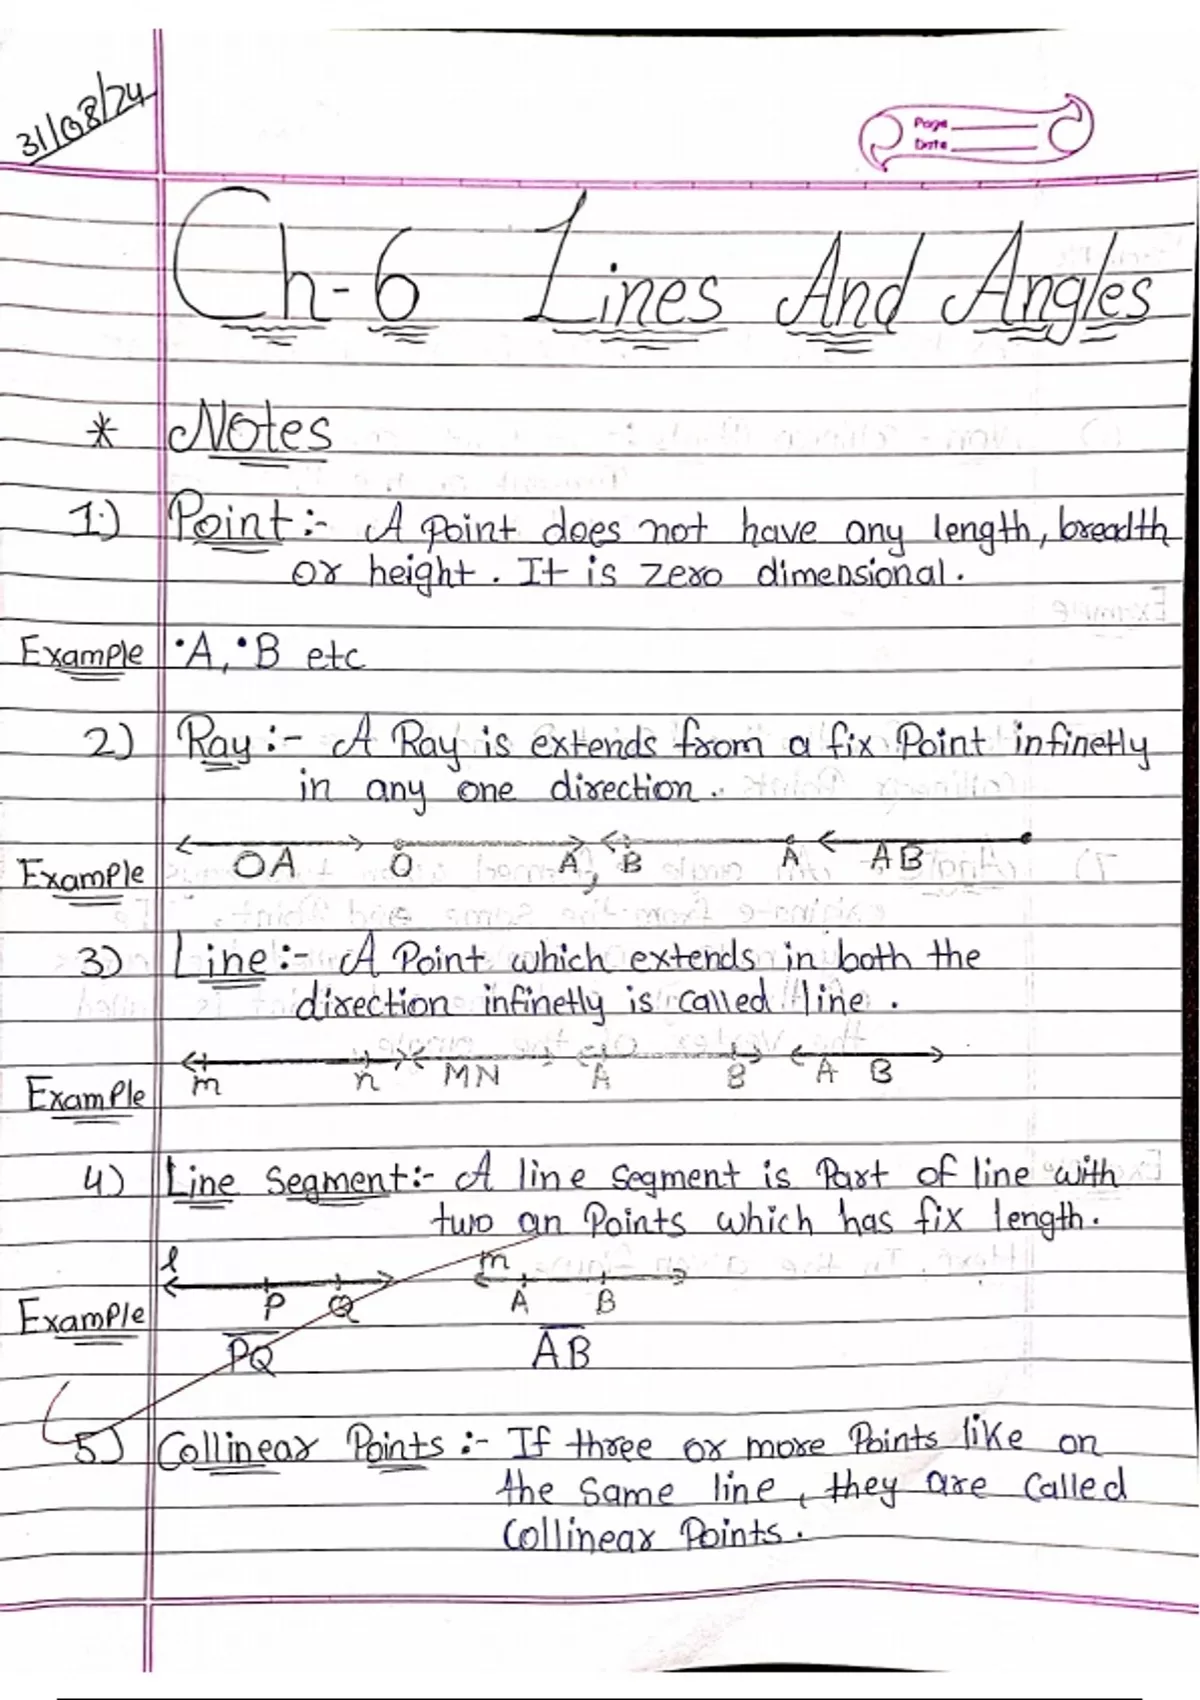 31/08/24
Page
Date
Ch-6 Lines And Angles
* Notes
1.) Point :- A Point does not have any length, breadth
or height. It is zero dimensional.
Example •A, •B etc
2) Ray :- A Ray is extends from a fix Point infinetly
in any one direction.
Example OA O A, B A AB
3) Line :- A Point which extends in both the
direction infinetly is called line.
Example m n MN A B A B
4) Line Segment :- A line segment is Part of line with
two an Points which has fix length.
l m
Example P Q A B
PQ AB
5) Collinear Points :- If three or more Points like on
the same line, they are called
Collinear Points.